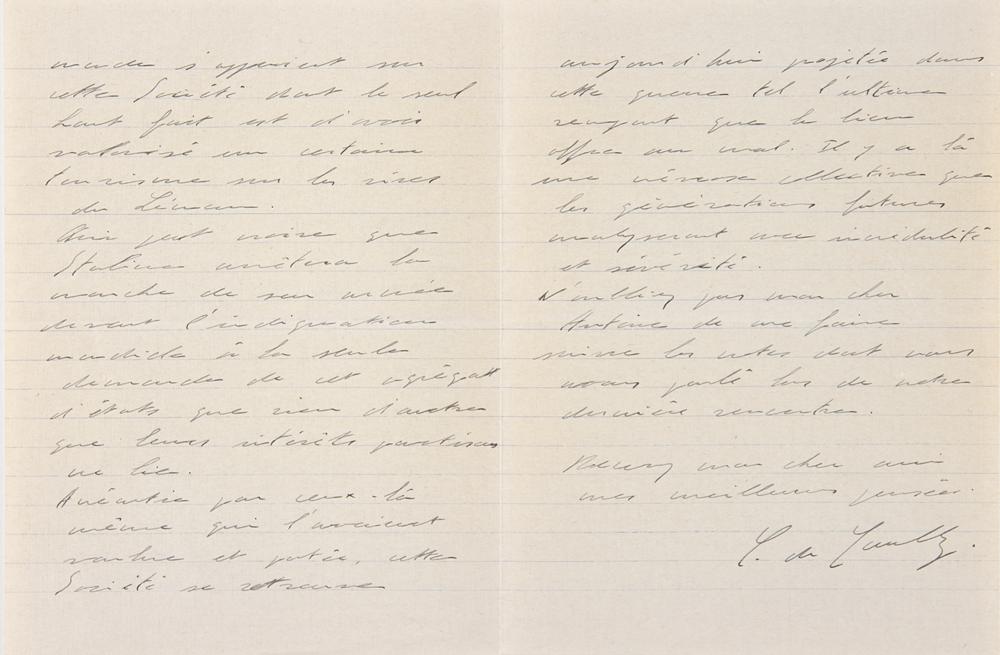 monde s'appuient sur
cette Société dont le seul
haut fait est d'avoir
valorisé un certain
tourisme sur les rives
du Léman.
Qui peut croire que
Staline arrêtera la
marche de son armée
devant l'indignation
mondiale à la seule
demande de cet agrégat
d'états que rien d'autre
que leurs intérêts partisans
ne lie.
Anéantie par ceux-là
même qui l'avaient
voulue et portée, cette
Société se retrouve
aujourd'hui projetée dans
cette guerre tel l'ultime
rempart que le bien
offre au mal. Il y a là
une névrose collective que
les générations futures
analyseront avec incrédulité
et sévérité.
N'oubliez pas mon cher
Antoine de me faire
suivre les notes dont nous
avons parlé lors de notre
dernière rencontre.
Recevez mon cher ami
mes meilleures pensées.
de